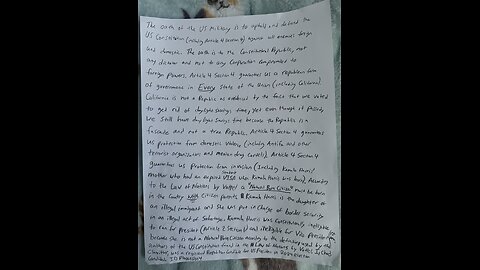 The oath of the US Military is to uphold and defend the
US Constitution (including Article 4 Section 4) against all enemies foreign
and domestic. The oath is to the Constitutional Republic, not
any dictator and not to any Corporation compromised to
foreign powers. Article 4 Section 4 guarantees us a republican form
of government in Every State of the Union (including California)
California is not a Republic as evidenced by the fact that we voted
to get rid of daylight savings time, yet even though it passed,
we still have daylight savings time because the Republic is a
facade and not a true Republic. Article 4 Section 4 guarantees
us protection from domestic violence, (including Antifa and other
terrorist organizations and mexican drug cartels). Article 4 Section 4
guarantees us Protection from invasion (including Kamala Harris'
mother who had an expired student VISA when Kamala Harris was born). According
to the Law of Nations by Vattel a "Natural Born Citizen" must be born
in the Country with Citizen parents. Kamala Harris is the daughter of
an illegal immigrant and she was put in Charge of border security
in an illegal act of Sabotage. Kamala Harris was Constitutionally ineligible
to run for president (Article 2 Section 1) and ineligible for Vice President
because she is not a Natural Born Citizen according to the definition used by the
authors of the US Constitution found in the Law of Nations by Vattel.
was a registered Republican Candidate for US President in 2024 election
Candidate ID